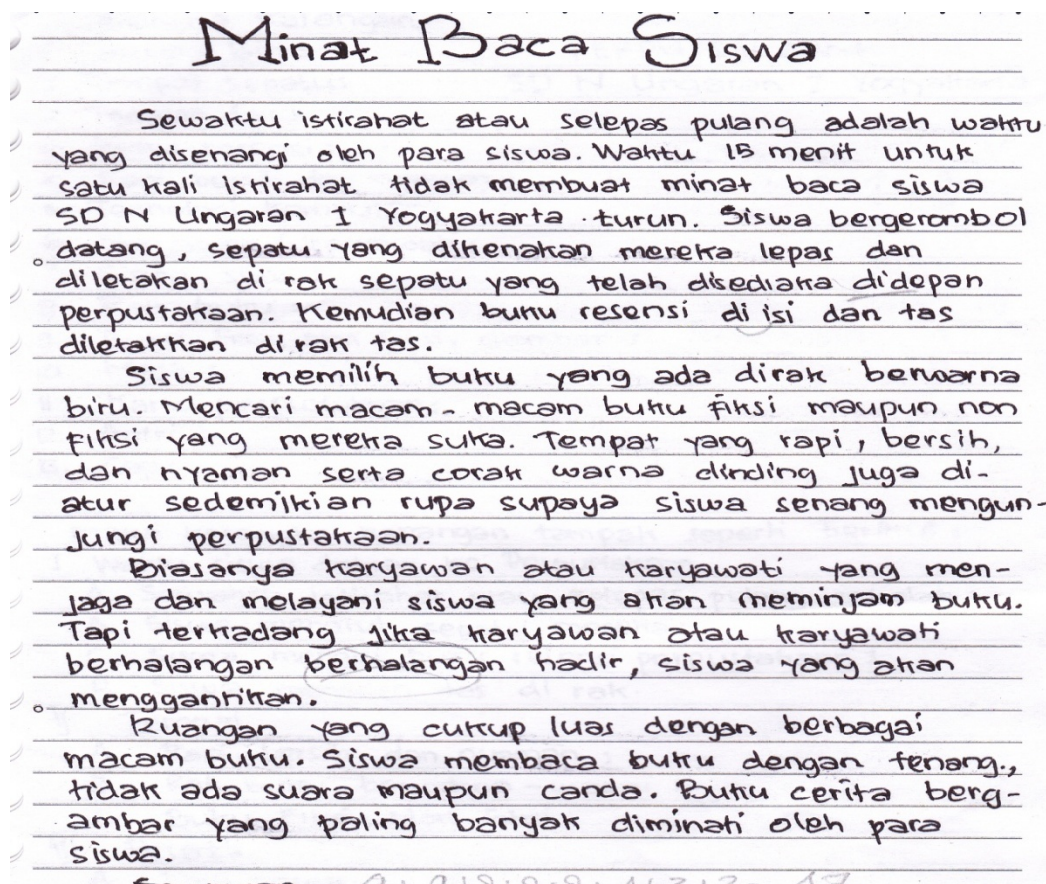 Minat Baca Siswa
Sewaktu istirahat atau selepas pulang adalah waktu
yang disenangi oleh para siswa. Waktu 15 menit untuk
satu kali istirahat tidak membuat minat baca siswa
SD N Ungaran I Yogyakarta turun. Siswa bergerombol
datang, sepatu yang dikenakan mereka lepas dan
diletakan di rak sepatu yang telah disediaka didepan
perpustakaan. Kemudian buku resensi di isi dan tas
diletakkan di rak tas.
Siswa memilih buku yang ada dirak berwarna
biru. Mencari macam-macam buku fiksi maupun non
fiksi yang mereka suka. Tempat yang rapi, bersih,
dan nyaman serta corak warna dinding juga di-
atur sedemikian rupa supaya siswa senang mengun-
jungi perpustakaan.
Biasanya karyawan atau karyawati yang men-
jaga dan melayani siswa yang akan meminjam buku.
Tapi terkadang jika karyawan atau karyawati
berhalangan berhalangan hadir, siswa yang akan
menggantikan.
Ruangan yang cukup luas dengan berbagai
macam buku. Siswa membaca buku dengan tenang.,
tidak ada suara maupun canda. Buku cerita berg-
ambar yang paling banyak diminati oleh para
siswa.